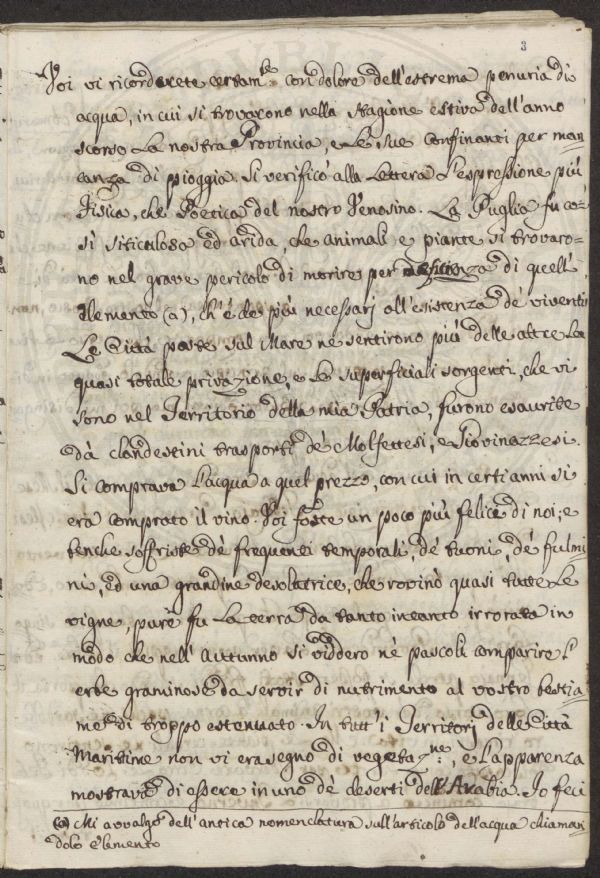 3
Voi vi ricorderete certam.te con dolore dell'estrema penuria di
acqua, in cui si trovarono nella stagione estiva dell'anno
scorso la nostra Provincia, e le sue confinanti per man
canza di pioggia. Si verificò alla lettera l'espressione più
Fisica, che Poetica del nostro Venosino. La Puglia fu co=
sì siticulosa ed arida, che animali e piante si trovaro=
no nel grave pericolo di morire per deficienza di quell'
elemento (a), ch'è de' più necessarj all'esistenza de' viventi
Le Città poste sul Mare ne sentirono più delle altre la
quasi totale privazione, e le superficiali sorgenti, che vi
sono nel Territorio della mia Patria, furono esaurite
dà clandestini trasporti de' Molfettesi, e Giovinazzesi.
Si comprava l'acqua a quel prezzo, con cui in certi anni si
era comprato il vino. Voi foste un poco più felice di noi; e
benche soffriste de' frequenti temporali, de' tuoni, de' fulmi
ni, ed una grandine desolatrice, che rovinò quasi tutte le
vigne, pure fu la terra da tanto intanto irrorata in
modo che nell'Autunno si viddero ne' pascoli comparire l'
erbe graminose da servir di nutrimento al vostro bestia
me di troppo estenuato. In tutt'i Territorj delle Città
Maritime non vi era segno di vegetaz.ne, e l'apparenza
mostrava di essere in uno de' deserti dell'Arabia. Io feci
(a) Mi avvalgo dell'antica nomenclatura sull'articolo dell'acqua chiaman
dolo elemento